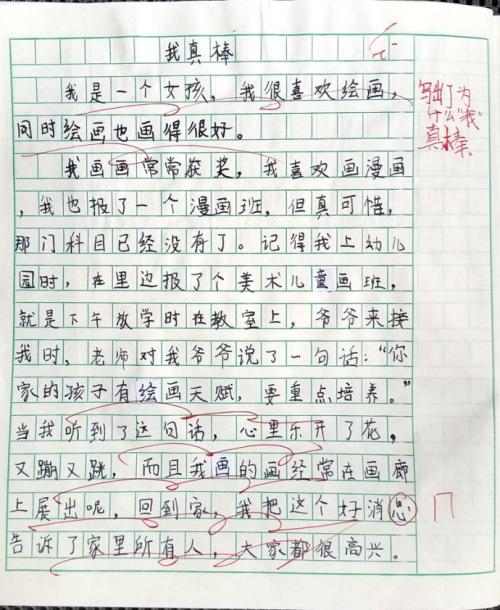 我真棒
我是一个女孩，我很喜欢绘画，
同时绘画也画得很好。
我画画常常获奖，我喜欢画漫画
，我也报了一个漫画班，但真可惟，
那门科目已经没有了。记得我上幼儿
园时，在里边报了个美术儿童画班，
就是下午放学时在教室上，爷爷来接
我时，老师对我爷爷说了一句话：“你
家的孩子有绘画天赋，要重点培养。”
当我听到了这句话，心里乐开了花，
又蹦又跳，而且我画的画经常在画廊
上展出呢，回到家，我把这个好消息
告诉了家里所有人，大家都很高兴。
写出了为
什么“我”
真棒